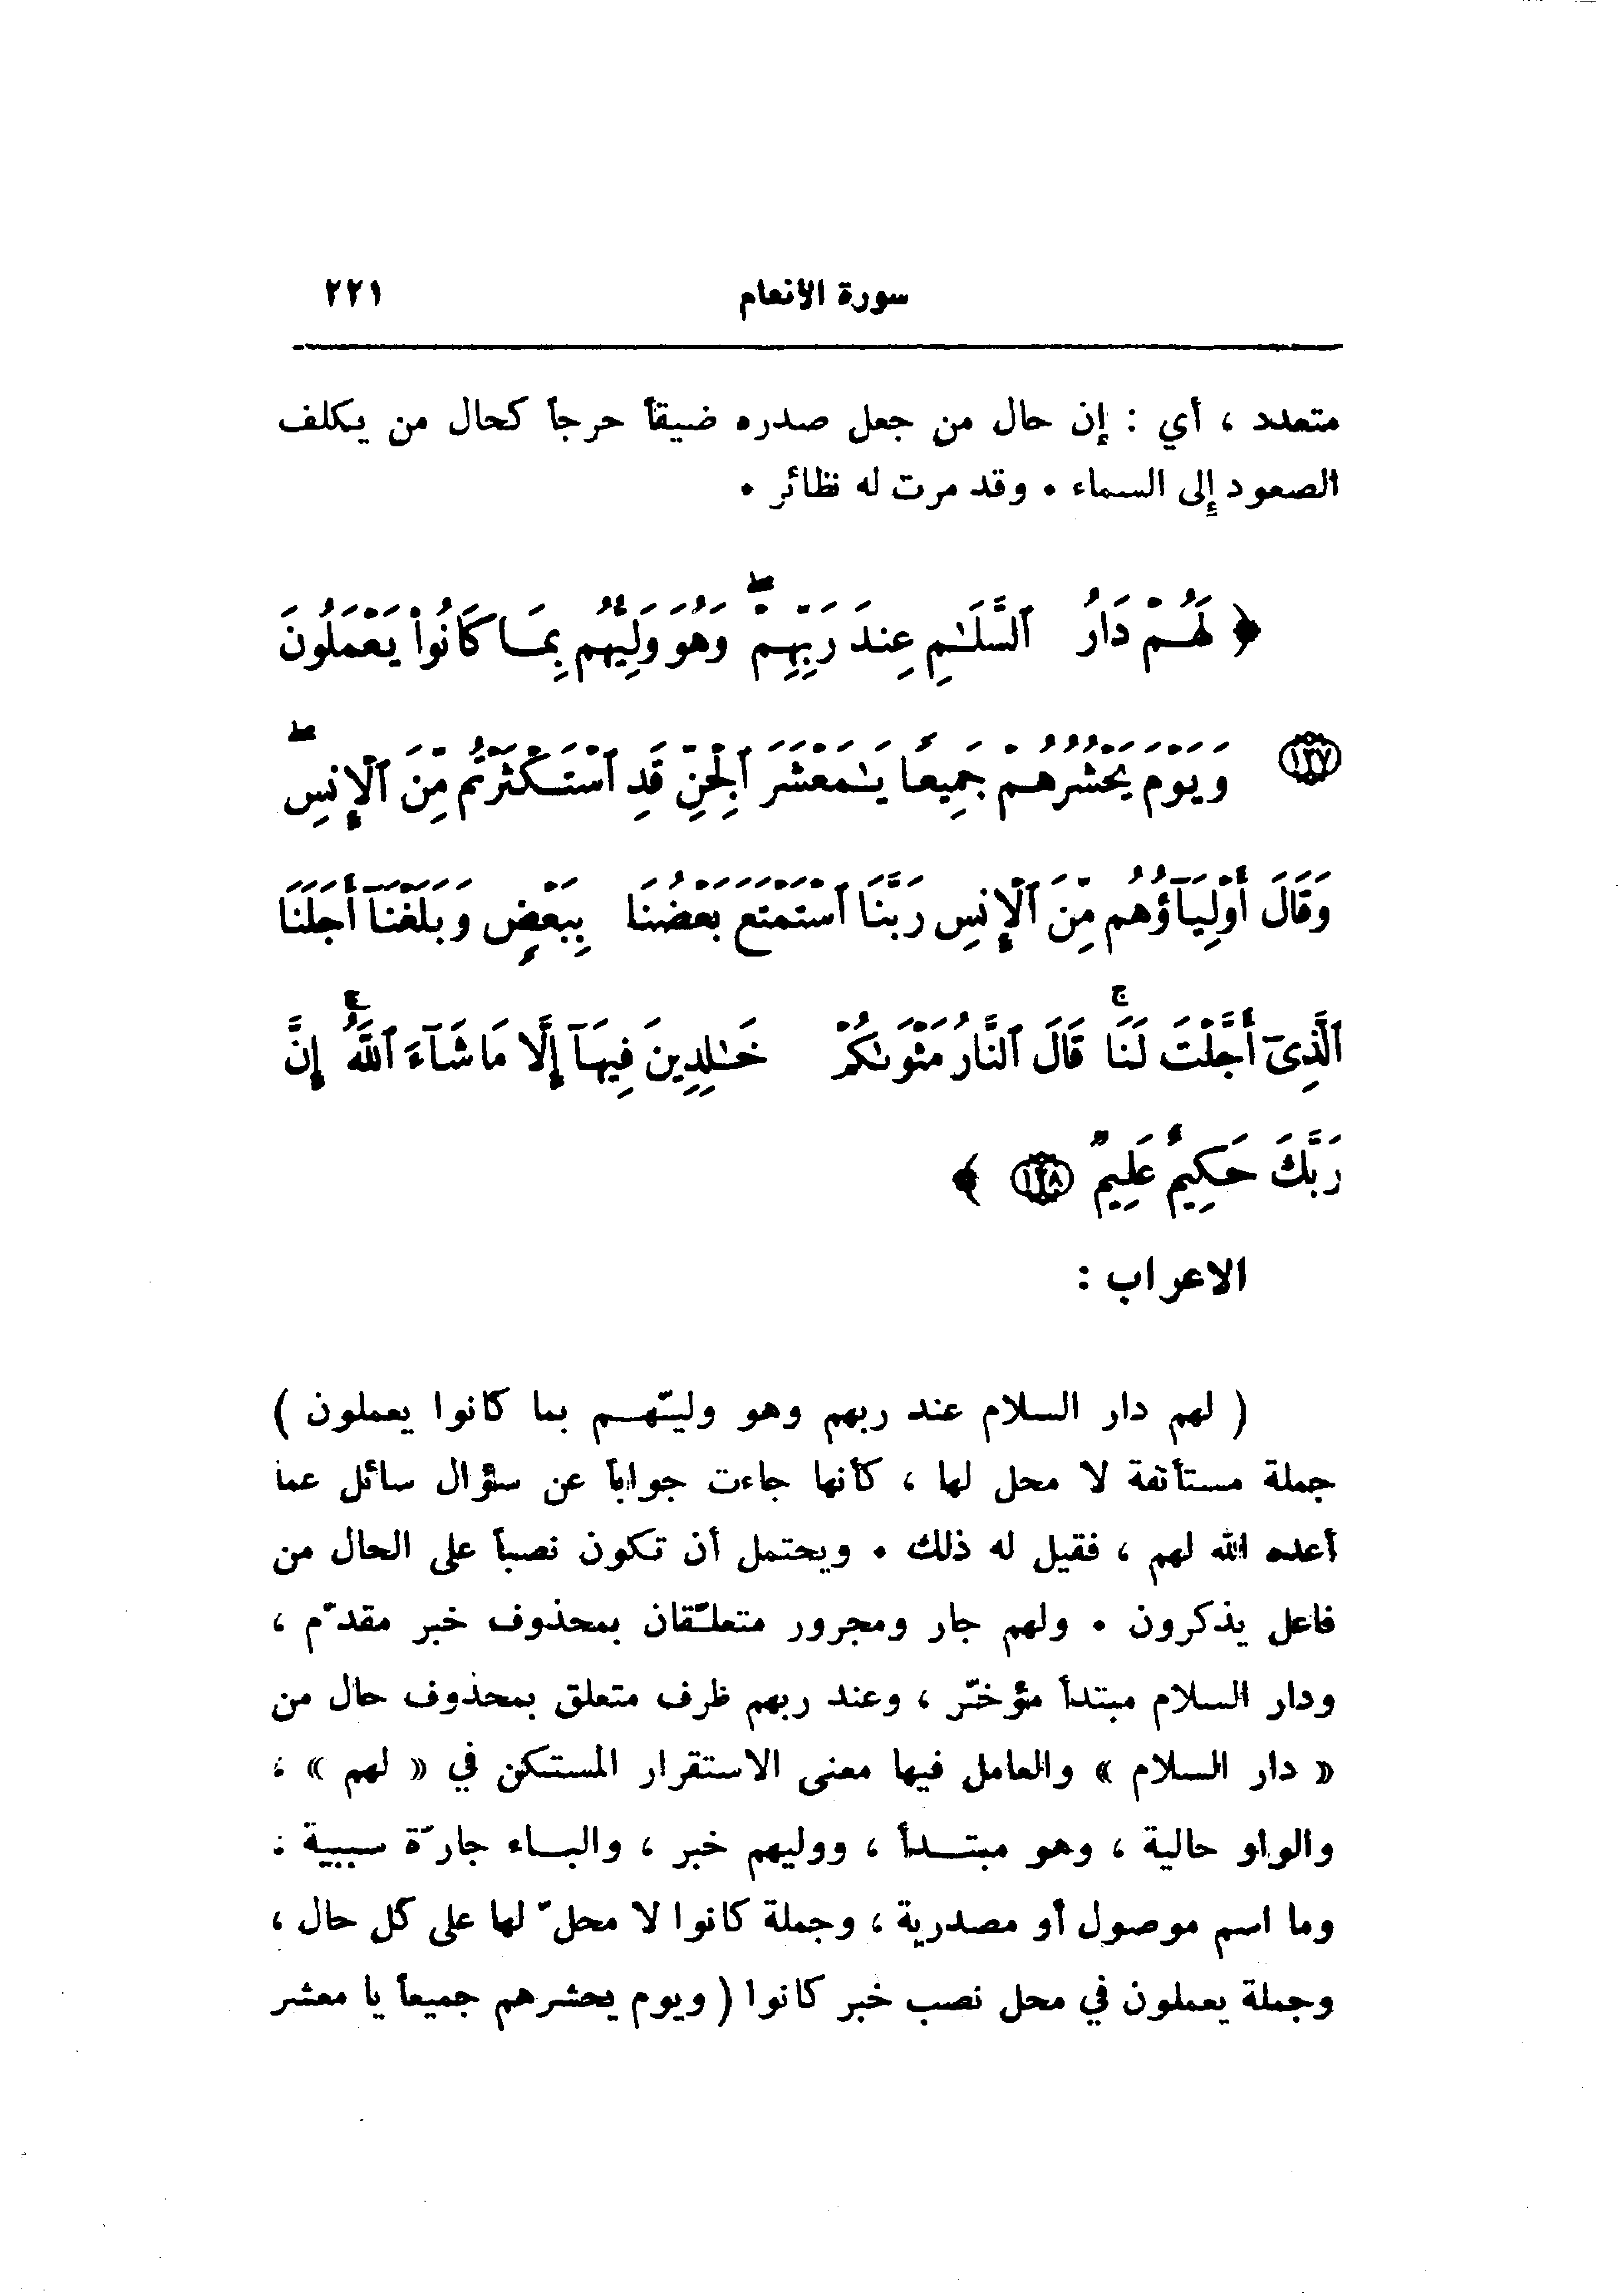 سورة الأنعام ٢٢١
متعدد ، أي : إن حال من جعل صدره ضيقاً حرجاً كحال من يكلف
الصعود إلى السماء . وقد مرت له نظائر .
﴿ لَهُمْ دَارُ ٱلسَّلَٰمِ عِندَ رَبِّهِمْ ۖ وَهُوَ وَلِيُّهُم بِمَا كَانُوا۟ يَعْمَلُونَ
١٢٧ وَيَوْمَ يَحْشُرُهُمْ جَمِيعًا يَٰمَعْشَرَ ٱلْجِنِّ قَدِ ٱسْتَكْثَرْتُم مِّنَ ٱلْإِنسِ ۖ
وَقَالَ أَوْلِيَآؤُهُم مِّنَ ٱلْإِنسِ رَبَّنَا ٱسْتَمْتَعَ بَعْضُنَا بِبَعْضٍ وَبَلَغْنَآ أَجَلَنَا
ٱلَّذِىٓ أَجَّلْتَ لَنَا ۚ قَالَ ٱلنَّارُ مَثْوَىٰكُمْ خَٰلِدِينَ فِيهَآ إِلَّا مَا شَآءَ ٱللَّهُ ۗ إِنَّ
رَبَّكَ حَكِيمٌ عَلِيمٌ ١٢٨ ﴾
الاعراب :
( لهم دار السلام عند ربهم وهو وليّهم بما كانوا يعملون )
جملة مستأنفة لا محل لها ، كأنها جاءت جواباً عن سؤال سائل عما
أعده الله لهم ، فقيل له ذلك . ويحتمل أن تكون نصباً على الحال من
فاعل يذكرون . ولهم جار ومجرور متعلّقان بمحذوف خبر مقدّم ،
ودار السلام مبتدأ مؤخّر ، وعند ربهم ظرف متعلق بمحذوف حال من
« دار السلام » والعامل فيها معنى الاستقرار المستكن في « لهم » ،
والواو حالية ، وهو مبتدأ ، ووليهم خبر ، والباء جارّة سببية :
وما اسم موصول أو مصدرية ، وجملة كانوا لا محلّ لها على كل حال ،
وجملة يعملون في محل نصب خبر كانوا ( ويوم يحشرهم جميعاً يا معشر